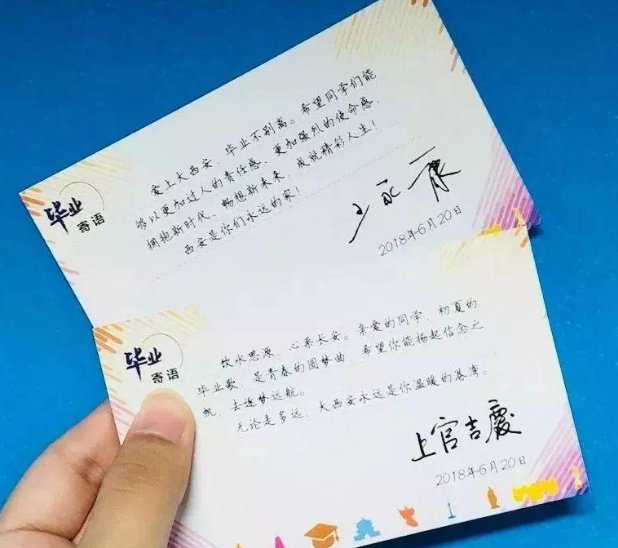 毕业
寄语
爱上大西安,毕业不别离。希望同学们能
够以更加过人的责任感、更加强烈的使命感,
拥抱新时代、畅想新未来、成就精彩人生!
西安是你们永远的家!
王永康
2018年6月20日
毕业
寄语
饮水思源,心系长安。亲爱的同学,初夏的
毕业歌,是青春的圆梦曲,希望你能扬起信念之
帆,去逐梦远航。
无论走多远,大西安永远是你温暖的港湾。
上官吉慶
2018年6月20日